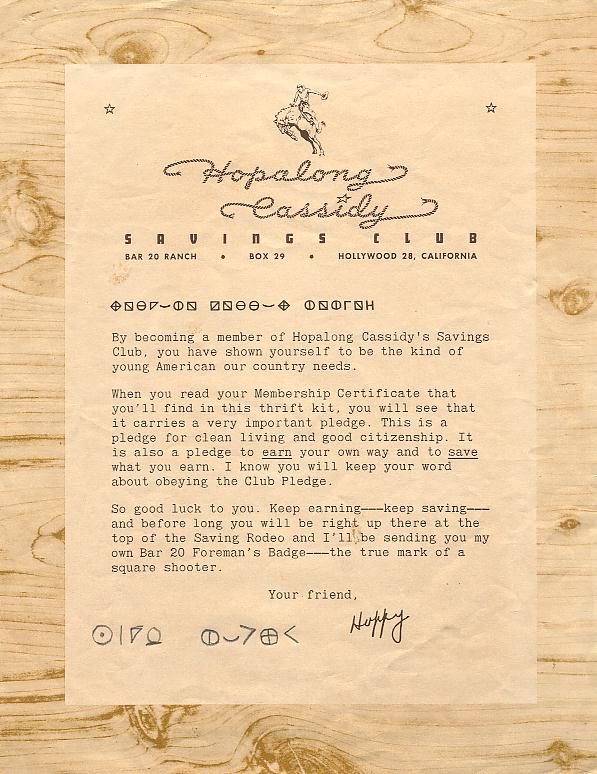 Hopalong
Cassidy
SAVINGS CLUB
BAR 20 RANCH • BOX 29 • HOLLYWOOD 28, CALIFORNIA
By becoming a member of Hopalong Cassidy's Savings
Club, you have shown yourself to be the kind of
young American our country needs.
When you read your Membership Certificate that
you'll find in this thrift kit, you will see that
it carries a very important pledge. This is a
pledge for clean living and good citizenship. It
is also a pledge to earn your own way and to save
what you earn. I know you will keep your word
about obeying the Club Pledge.
So good luck to you. Keep earning---keep saving---
and before long you will be right up there at the
top of the Saving Rodeo and I'll be sending you my
own Bar 20 Foreman's Badge---the true mark of a
square shooter.
Your friend,
Hoppy